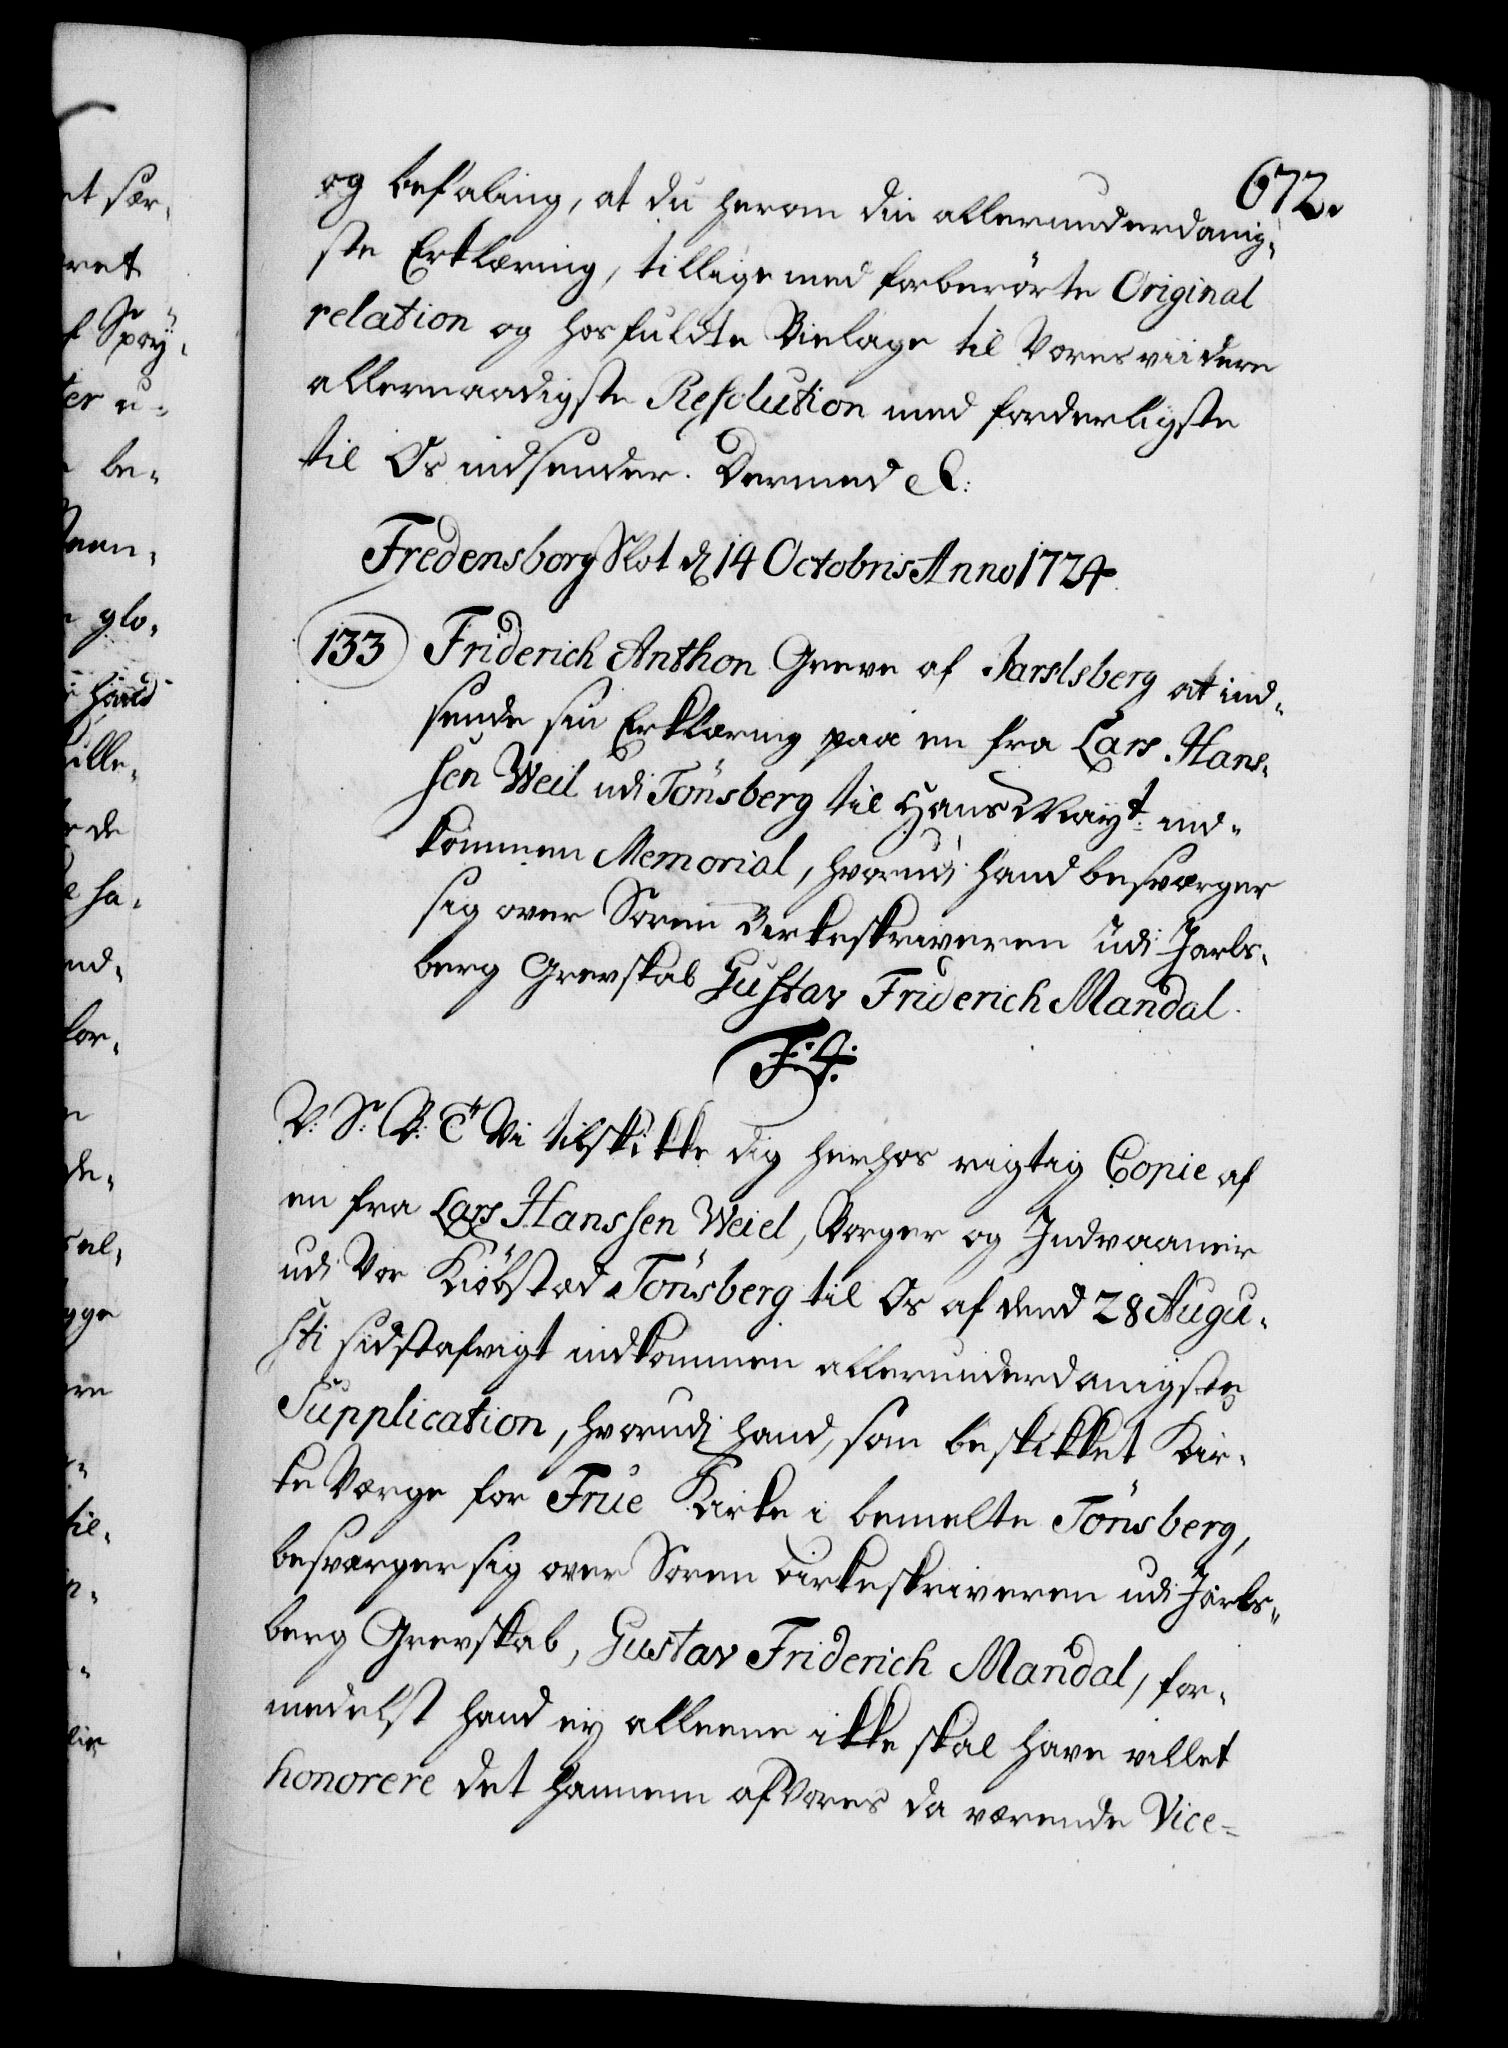 672.
og befaling, at du herom din allerunderdanig-
ste Erklæring, tillige med forberörte Original
relation og hosfuldte Bielage til Vores viidere
allernaadigste Resolution med forderligste
til Os indsender. Dermed &:
Fredensborg Slot d 14 Octobris Anno 1724
133 Friderich Anthon Greve af Jarslsberg at ind-
sende sin Erklæring paa en fra Lars Hans-
sen Weil udi Tönsberg til Hans Mayt. ind-
kommen Memorial, hvorudi hand besværger
sig over Soren Berkeskriveren udi Jarls-
berg Grevskab Gustav Friderich Mandal.
F: 4:
V: S: G: T Vi tilskikke dig herhos rigtig Copie af
en fra Lars Hanssen Weiel, Borger og Indvaaner
udi Vor Kiöbstad Tönsberg til Os af dend 28 Augu-
sti sidstafvigt indkommen allerunderdanigste
Supplication, hvorudi hand, som beskikket Kir-
ke Værge for Frue Kirke i bemelte Tönsberg,
besværger sig over Soren Birkeskriveren udi Jarls-
berg Grevskab, Gustav Friderich Mandal, for-
medelst hand ey alleene ikke skal have villet
honorere det hannem af Vores da værende Vice-
et sær-
ret
f Spöy-
ter u-
be-
glo-
hand
ille-
de
ha-
ind-
for-
de-
sel-
gge
ere
til-